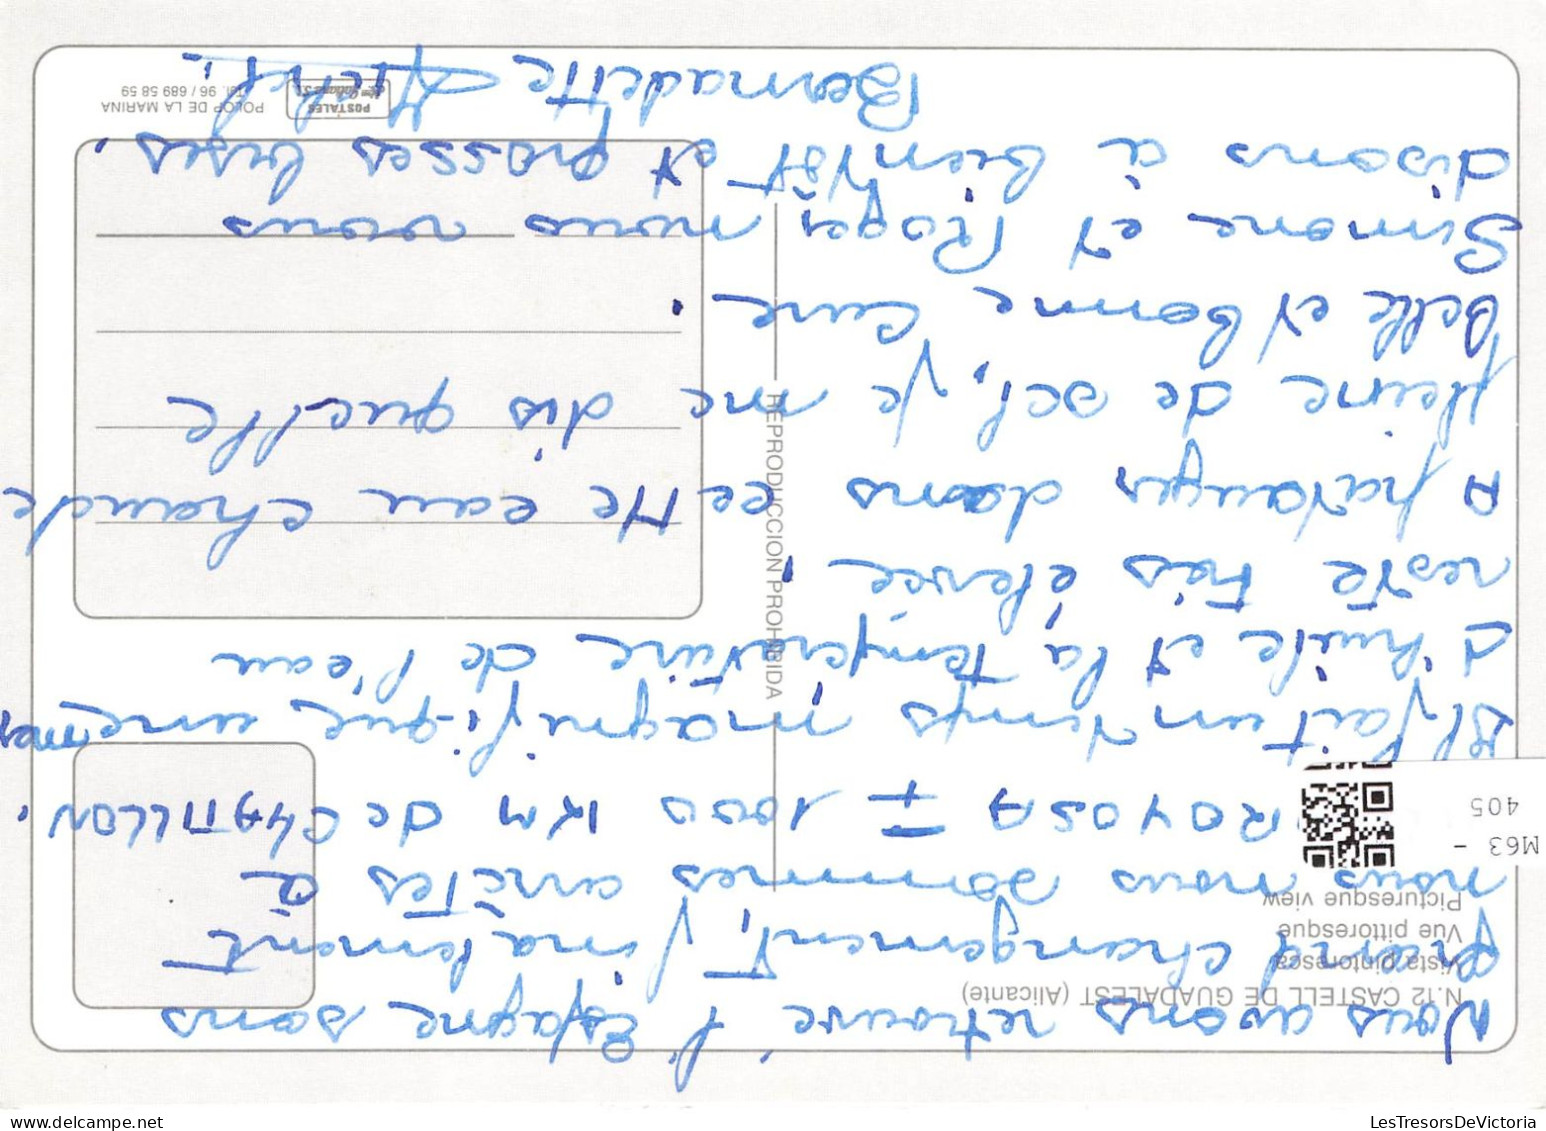 Nous avons retrouvé l'Espagne sans
grand changement, finalement
nous nous sommes arrêtés à
ROYOSA = 1000 KM de CHATILLON.
Il fait un temps magnifi-que une mer
d'huile et la température de l'eau
reste très élevée,
A patauger dans cette eau chaude
pleine de sel, je me dis quelle
belle et bonne cure.
Simone et Roger nous vous
disons à bientôt et grosses bises.
Bernadette Michel.
N.12 CASTELL DE GUADALEST (Alicante)
Vista pintoresca
Vue pittoresque
Picturesque view
REPRODUCCION PROHIBIDA
POSTALES
POLOP DE LA MARINA
Tel. 96 / 689 58 59
M63 -
405
LesTresorsDeVictoria